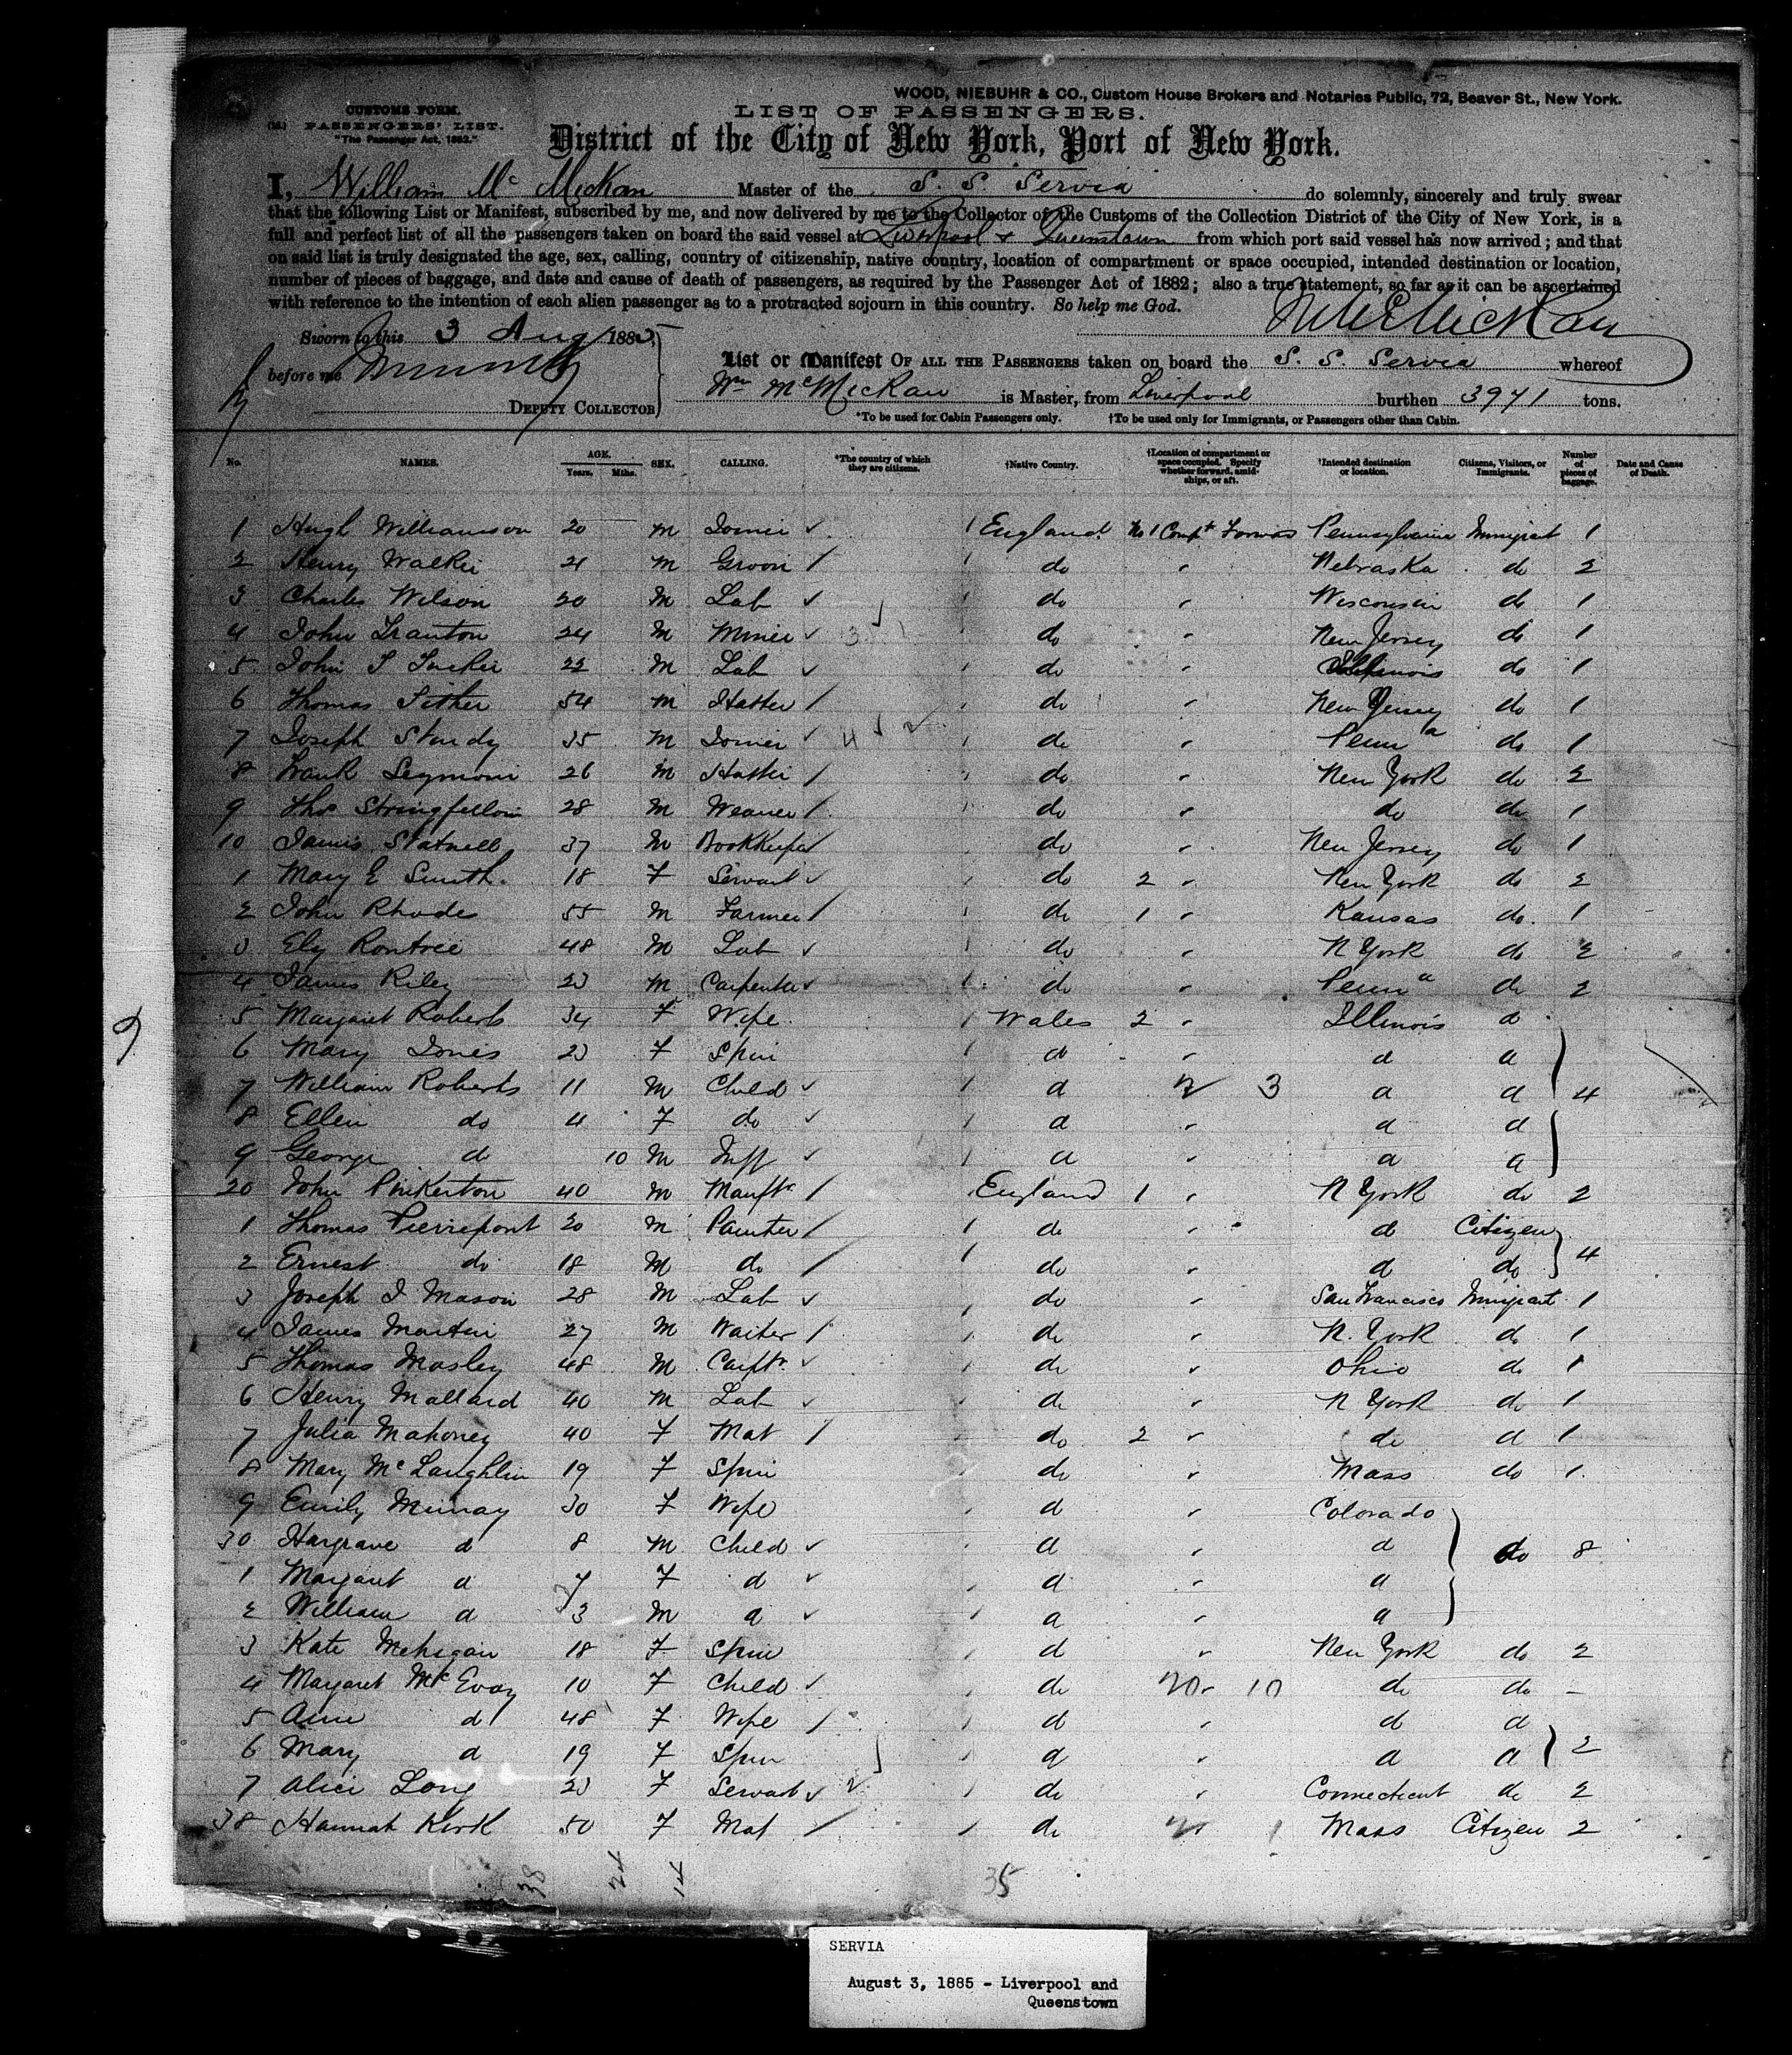 WOOD, NIEBUHR & CO., Custom House Brokers and Notaries Public, 72, Beaver St., New York.
CUSTOMS FORM.
PASSENGERS' LIST.
"The Passenger Act, 1882."
LIST OF PASSENGERS.
District of the City of New York, Port of New York.
I, William Mc Mickan Master of the S. S. Servia do solemnly, sincerely and truly swear
that the following List or Manifest, subscribed by me, and now delivered by me to the Collector of the Customs of the Collection District of the City of New York, is a
full and perfect list of all the passengers taken on board the said vessel at Liverpool & Queenstown from which port said vessel has now arrived; and that
on said list is truly designated the age, sex, calling, country of citizenship, native country, location of compartment or space occupied, intended destination or location,
number of pieces of baggage, and date and cause of death of passengers, as required by the Passenger Act of 1882; also a true statement, so far as it can be ascertained
with reference to the intention of each alien passenger as to a protracted sojourn in this country. So help me God.
Sworn to this 3 Aug 1885,
before me
DEPUTY COLLECTOR
List or Manifest OF ALL THE PASSENGERS taken on board the S. S. Servia whereof
Wm McMickan is Master, from Liverpool burthen 3971 tons.
*To be used for Cabin Passengers only. †To be used only for Immigrants, or Passengers other than Cabin.
No. NAMES. AGE. Years. Mths. SEX. CALLING. *The country of which they are citizens. †Native Country. †Location of compartment or space occupied. Specify whether forward, amidships, or aft. †Intended destination or location. Citizens, Visitors, or Immigrants. Number of pieces of baggage. Date and Cause of Death.
1 Hugh Williamson 20 M Joiner England No 1 Compt Forward Pennsylvania Immigrant 1
2 Henry Walker 21 M Groom do " Nebraska do 2
3 Charles Wilson 20 M Lab do " Wisconsin do 1
4 John Tranton 24 M Miner do " New Jersey do 1
5 John S Tucker 22 M Lab do " do 1
6 Thomas 54 M Hatter do " New Jersey do 1
7 Joseph Standy 35 M Joiner do " Penna do 1
8 Frank Seymour 26 M Hatter do " New York do 2
9 Thos Stringfellow 28 M Weaver do " do do 1
10 James 37 M Bookkeeper do " New Jersey do 1
1 Mary E Smith 18 F Servant do 2 " New York do 2
2 John Rhodes 55 M Farmer do 1 " Kansas do 1
3 Ely Rontree 48 M Lab do " N York do 2
4 James Riley 23 M Carpenter do " Penna do 2
5 Margaret Roberts 34 F Wife Wales 2 " Illinois d
6 Mary Jones 23 F Spin do " d d
7 William Roberts 11 M Child d 3 d d 4
8 Ellen do 4 F do d " d d
9 George d 10 M Inft d " d d
20 John Pinkerton 40 M Manftr England 1 " N York do 2
1 Thomas Pierrepont 20 M Painter do " d Citizen
2 Ernest do 18 M do do " d do 4
3 Joseph J Mason 28 M Lab do " San Francisco Immigrant 1
4 James Martin 27 M Waiter do " N. York do 1
5 Thomas Mosley 48 M Carptr do " Ohio do 1
6 Henry Mallard 40 M Lab do " N York do 1
7 Julia Mahoney 40 F Mat do 2 " do d 1
8 Mary McLaughlin 19 F Spin do " Mass do 1
9 Emily Murray 30 F Wife d " Colorado
30 Hargrave d 8 M Child d " d do 8
1 Margaret d 7 F d d " d
2 William d 3 M d d " d
3 Kate Mehigan 18 F Spin d " New York do 2
4 Margaret McEvoy 10 F Child do 10 do do -
5 Ann d 48 F Wife d " d d
6 Mary d 19 F Spin d " d d 2
7 Alice Long 23 F Servant do " Connecticut do 2
38 Hannah Kirk 50 F Mat do 1 Mass Citizen 2
38 24 14 35
SERVIA
August 3, 1885 - Liverpool and
Queenstown